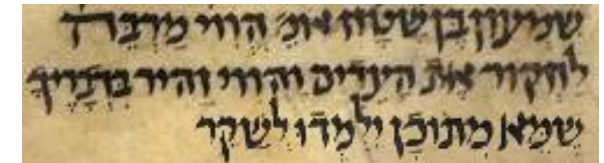 שמעון בן שטח אומ' הווי מרבה
לחקור את העדים והווי זהיר בדבריך
שמא מתוכן ילמדו לשקר